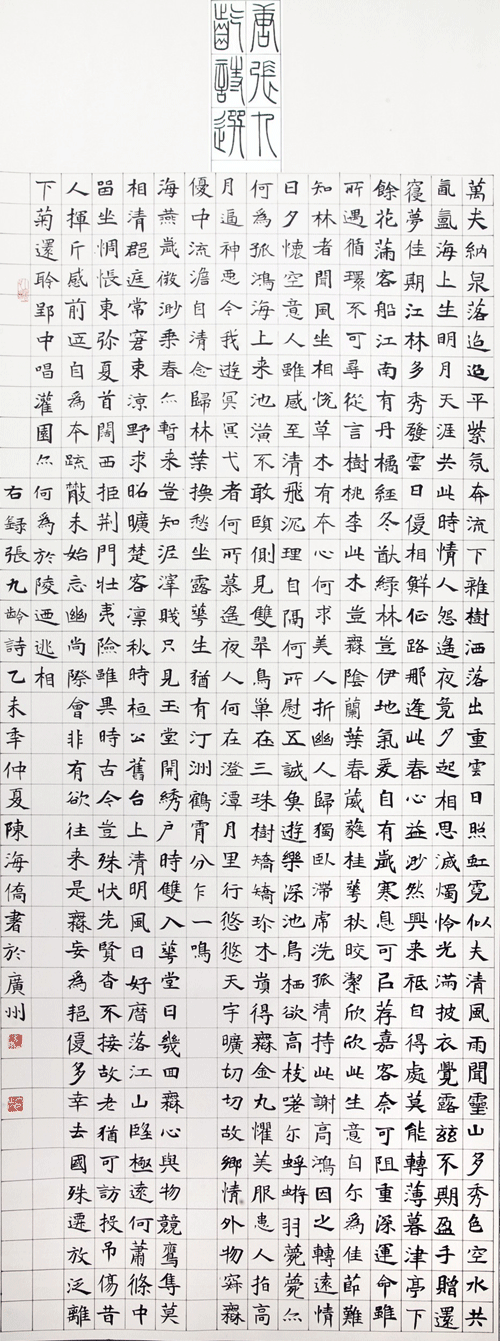 唐張九
齡詩選
萬丈紅泉落迢迢半紫氛奔流下雜樹洒落出重雲日照虹霓似天清風雨聞靈山多秀色空水共
氤氳海上生明月天涯共此時情人怨遙夜竟夕起相思滅燭憐光滿披衣覺露滋不堪盈手贈還
寢夢佳期江林多秀發雲日復相鮮征路那逢此春心益渺然興來祇自得處莫能轉薄暮津亭下
餘花滿客船江南有丹橘經冬猶綠林豈伊地氣暖自有歲寒心可以荐嘉客奈何阻重深運命雖
所遇循環不可尋徒言樹桃李此木豈無陰蘭葉春葳蕤桂華秋皎潔欣欣此生意自尔為佳節誰
知林者聞風坐相悅草木有本心何求美人折幽人歸獨臥滯慮洗孤清持此謝高鴻因之轉遠情
日夕懷空意人誰感至精飛沉理自隔何所慰吾誠魚遊樂深池鳥栖欲高枝嗟尔蜉蝣羽薨薨亦
何為孤鴻海上來池潢不敢顧側見雙翠鳥巢在三珠樹矯矯珍木巔得無金丸懼美服患人指高
月逼神惡今我遊冥冥弋者何所慕遙夜人何在澄潭月里行悠悠天宇曠切切故鄉情外物寂無
優中流澹自清念歸林葉換愁坐露華生猶有汀洲鶴宵分乍一鳴
海燕歲微眇乘春亦暫來豈知泥滓賤只見玉堂開綉戶時雙入華堂日幾回無心與物競鷹隼莫
相清郢庭常窘束涼野求昭曠楚客凜秋時桓公舊台上清明風日好曆落江山望極遠何蕭條中
留坐惆悵東彌夏首闊西拒荊門壯夷險雖異時古今豈殊狀先賢杳不接故老猶可訪投弔傷昔
人揮斤感前匠自為本疏散未始忘幽尚際會非有欲往來是無妄為邦復多幸去國殊遷放泛離
下菊還聆郢中唱灌園亦何為於陵廼逃相
右錄張九齡詩乙未年仲夏陳海僑書於廣州